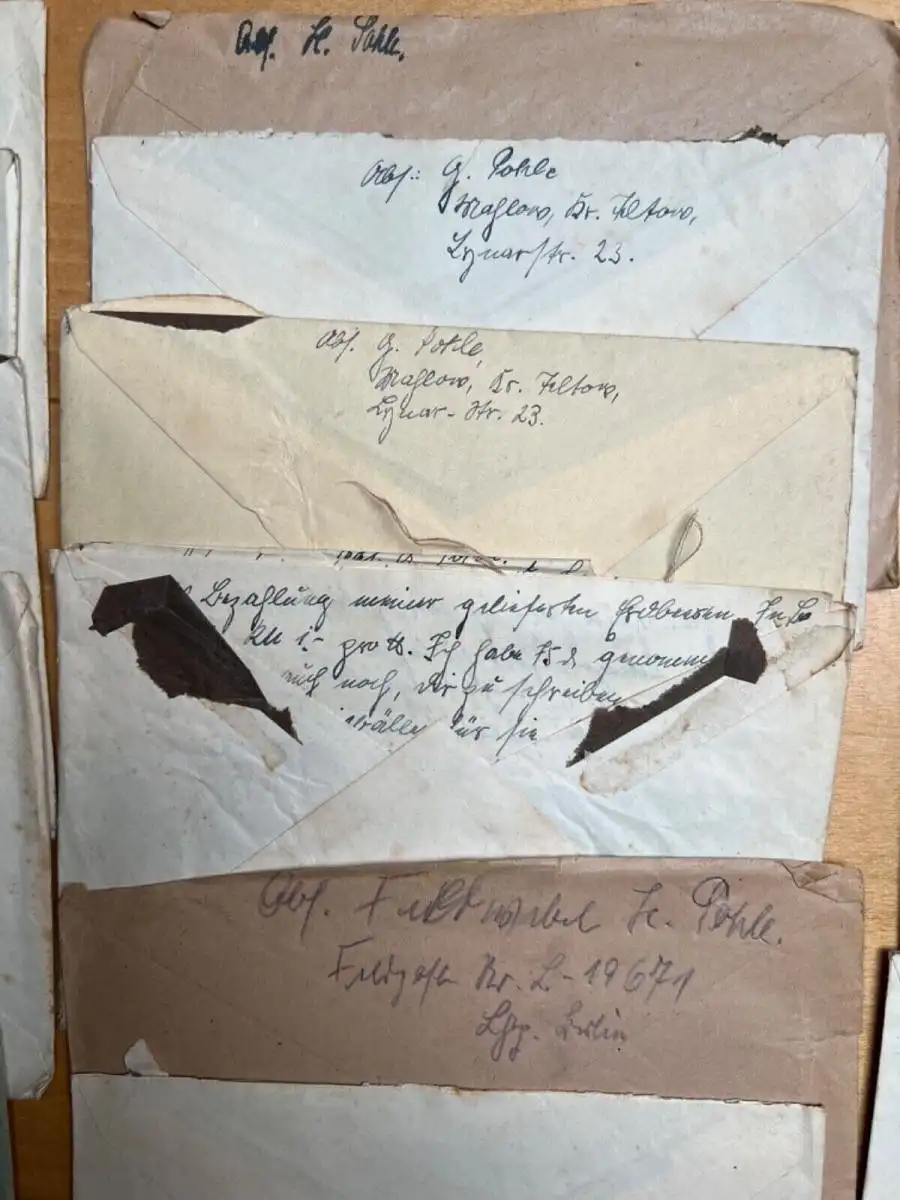 Abs. H. Pohle.
Abs.: G. Pohle
Mahlow, Kr. Teltow,
Lynarstr. 23.
Abs. G. Pohle,
Mahlow, Kr. Teltow,
Lynar-Str. 23.
Bezahlung meiner gelieferten Erdbeeren
pro tt. Ich habe 75 genommen
noch, dir zu schreiben
für sie
Abs. Feldwebel H. Pohle.
Feldpost Nr. L-19671
Lgp. Berlin